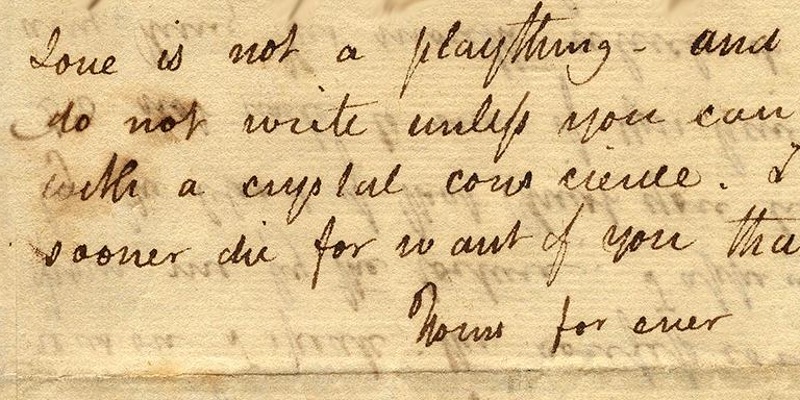 Love is not a plaything - and
do not write unless you can
with a crystal conscience. I
sooner die for want of you tha
Yours for ever